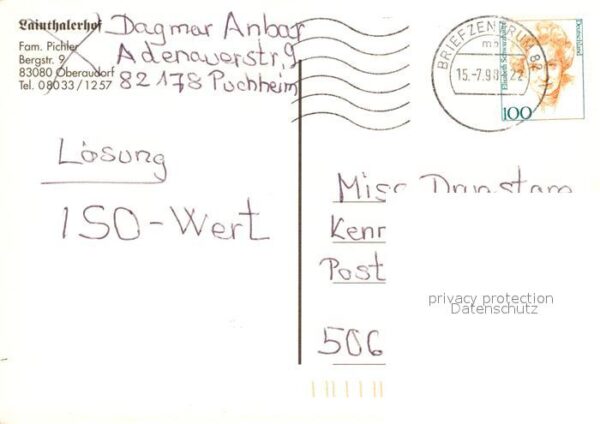 Lainthalerhof
Fam. Pichler
Bergstr. 9
83080 Oberaudorf
Tel. 08033/1257
Dagmar Anbar
Adenauerstr. 9
82178 Puchheim
BRIEFZENTRUM 82
15.-7.98-22
Deutschland
Elisabeth Schwarzhaupt
100
Lösung
ISO-Wert
Kenr
Post
506
privacy protection
Datenschutz